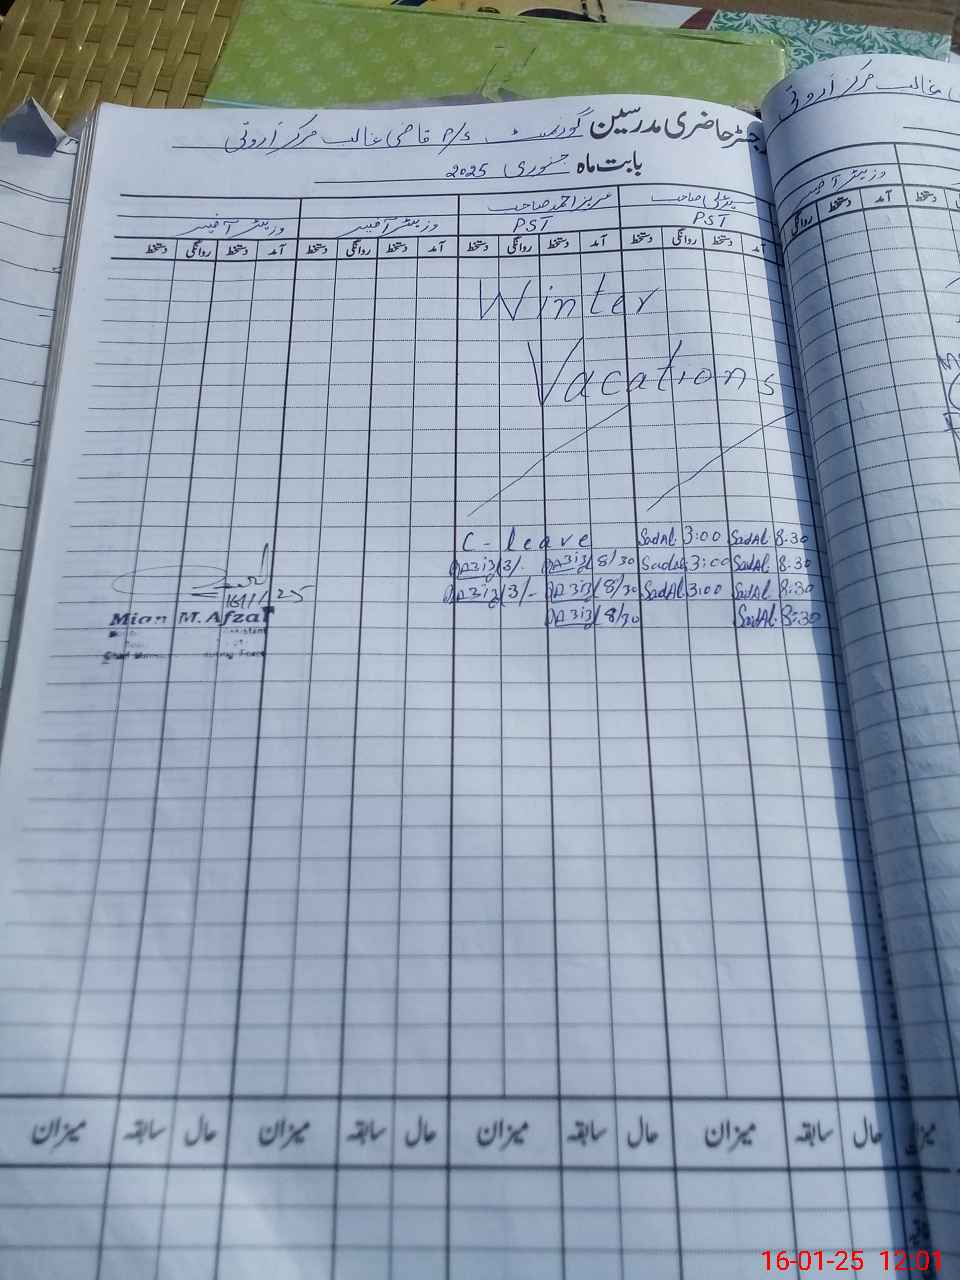 رجسٹر حاضری مدرسین گورنمنٹ P/S قاضی غالب مرکز اروتی
بابت ماہ جنوری 2025
عزیز احمد صاحب
وزیٹر آفیسر
PST PST وزیٹر آفیسر وزیٹر آفیسر
آمد دستخط روانگی دستخط آمد دستخط روانگی دستخط آمد دستخط روانگی دستخط آمد دستخط روانگی دستخط
آمد دستخط
Winter
Vacations
8:30 SadAl. 3:00 SadAl. C-leave
8:30 SadAl. 3:00 SadAl. 8/30 3/-
8:30 SadAl. 3:00 SadAl. 8/30 3/-
8:30 SadAl. 8/30
16/1/25
Mian M. Afzal
میزان حال سابقہ میزان حال سابقہ میزان حال سابقہ میزان حال سابقہ میزان
16-01-25 12:01